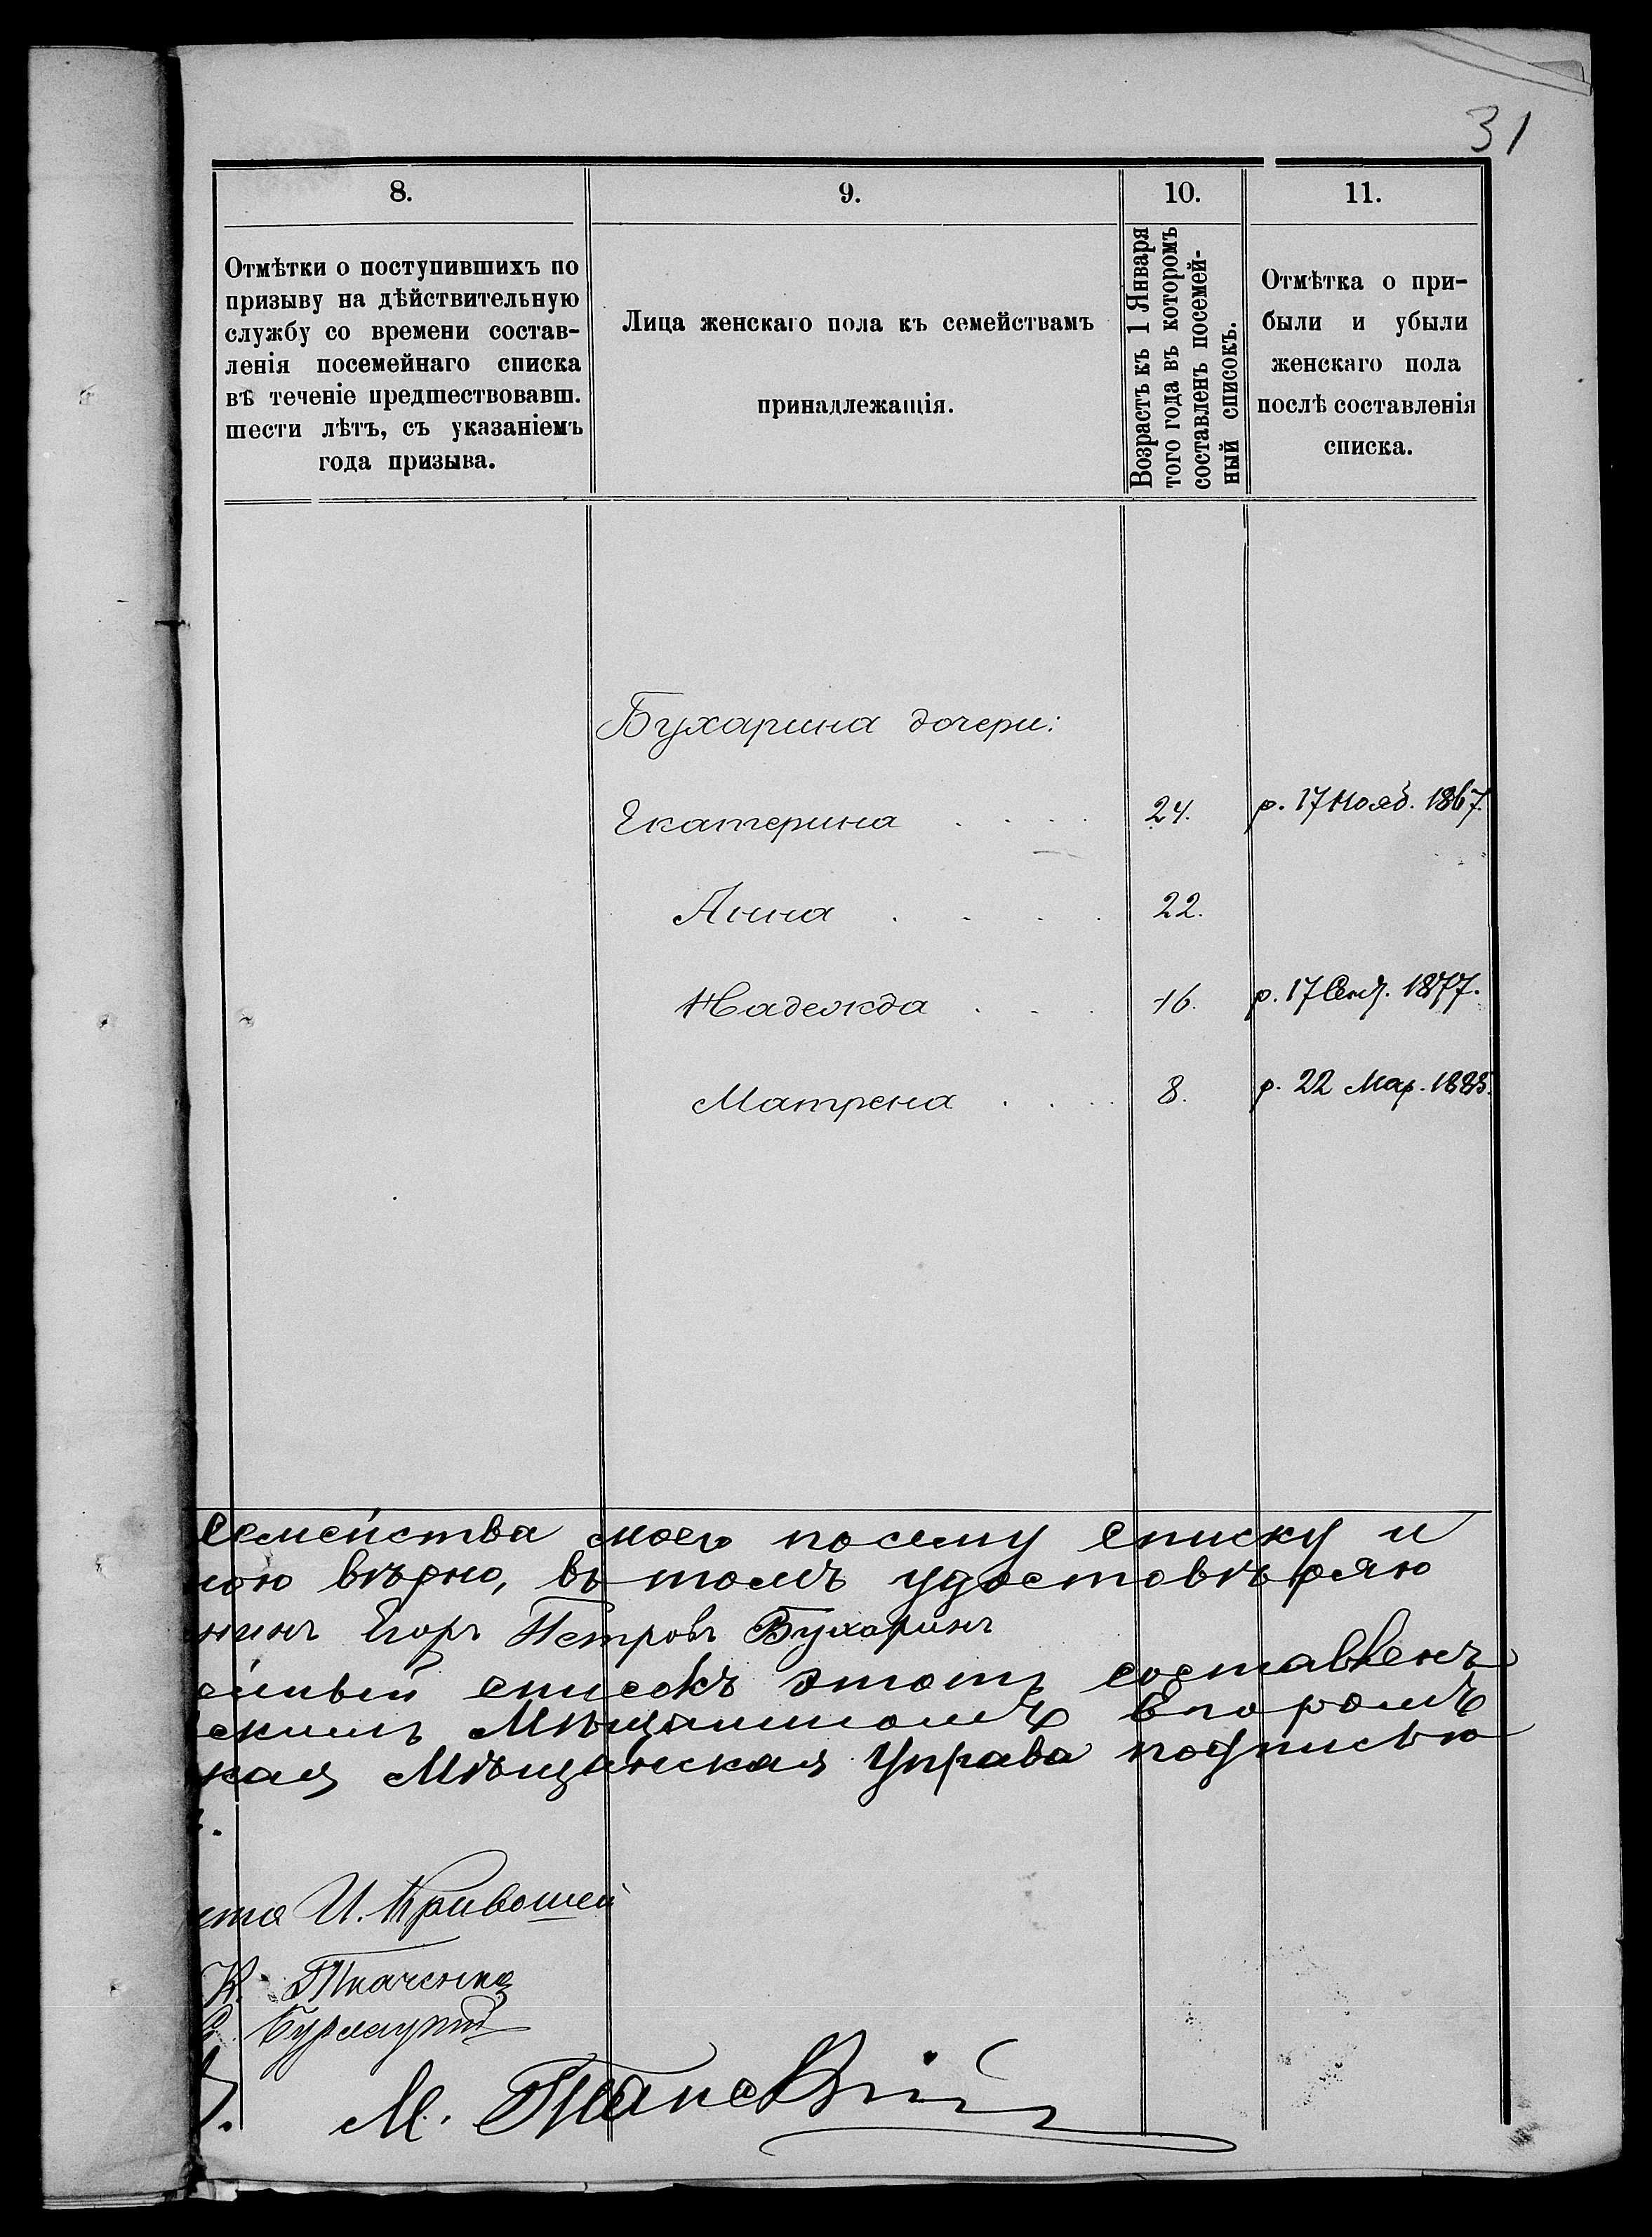 31
8.
9.
10.
11.
Отмѣтки о поступившихъ по
призыву на дѣйствительную
службу со времени состав-
ленія посемейнаго списка
въ теченіе предшествовавш.
шести лѣтъ, съ указаніемъ
года призыва.
Лица женскаго пола къ семействамъ
принадлежащія.
Возрастъ къ 1 Января
того года въ которомъ
составленъ посемей-
ный списокъ.
Отмѣтка о при-
были и убыли
женскаго пола
послѣ составленія
списка.
Бухарина дочери:
Екатерина . . . . 24. р. 17 Нояб. 1867.
Анна . . . . 22.
Надежда . . . 16. р. 17 Сент. 1877.
Матрена . . . . 8. р. 22 Мар. 1885.
Семейства моего посему списку и
вѣрно, въ томъ удостовѣряю
нинъ Егоръ Петровъ Бухаринъ
списокъ этотъ составленъ
скимъ Мѣщаниномъ Егоромъ
кая Мѣщанская Управа подписью
ста И. Кривошей
К. Ткаченко
М.